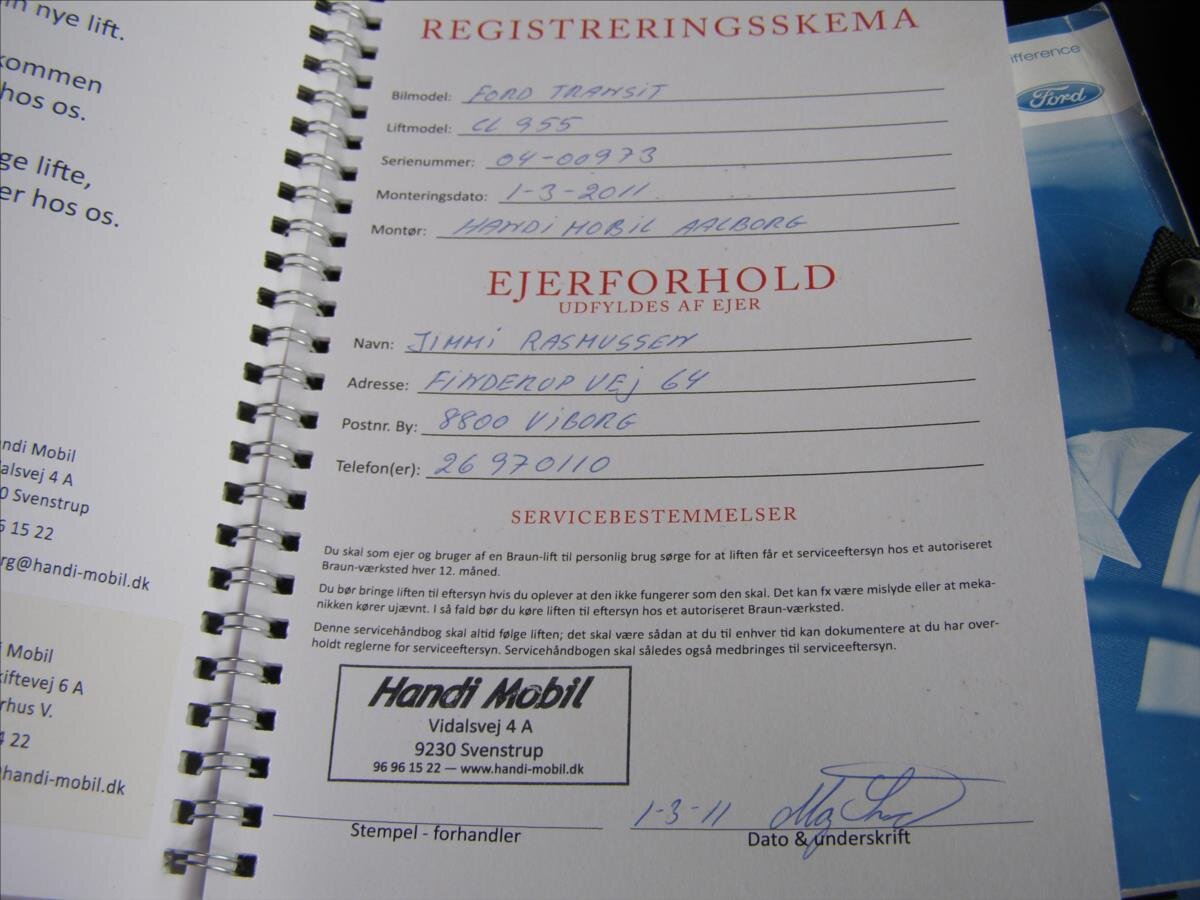 n nye lift.
kommen
hos os.
ge lifte,
er hos os.
ndi Mobil
alsvej 4 A
0 Svenstrup
6 15 22
rg@handi-mobil.dk
i Mobil
kiftevej 6 A
rhus V.
4 22
@handi-mobil.dk
REGISTRERINGSSKEMA
Bilmodel: FORD TRANSIT
Liftmodel: CL 955
Serienummer: 04-00973
Monteringsdato: 1-3-2011
Montør: HANDI MOBIL AALBORG
EJERFORHOLD
UDFYLDES AF EJER
Navn: JIMMI RASMUSSEN
Adresse: FINDERUPVEJ 64
Postnr. By: 8800 VIBORG
Telefon(er): 26 970110
SERVICEBESTEMMELSER
Du skal som ejer og bruger af en Braun-lift til personlig brug sørge for at liften får et serviceeftersyn hos et autoriseret
Braun-værksted hver 12. måned.
Du bør bringe liften til eftersyn hvis du oplever at den ikke fungerer som den skal. Det kan fx være mislyde eller at meka-
nikken kører ujævnt. I så fald bør du køre liften til eftersyn hos et autoriseret Braun-værksted.
Denne servicehåndbog skal altid følge liften; det skal være sådan at du til enhver tid kan dokumentere at du har over-
holdt reglerne for serviceeftersyn. Servicehåndbogen skal således også medbringes til serviceeftersyn.
Handi Mobil
Vidalsvej 4 A
9230 Svenstrup
96 96 15 22 — www.handi-mobil.dk
1-3-11
Stempel - forhandler
Dato & underskrift
ifference
Ford